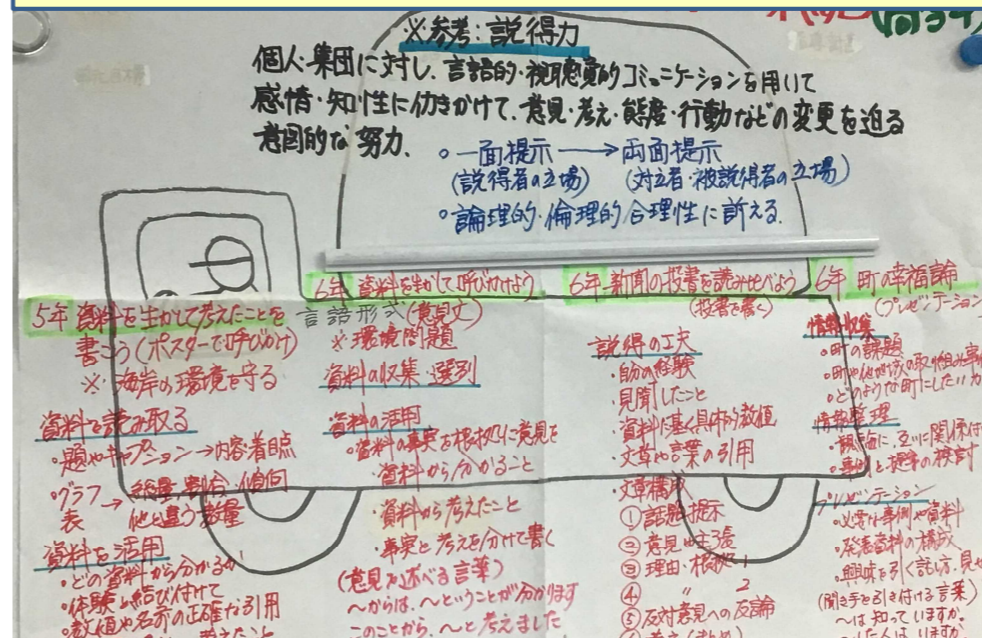 ※参考：説得力
個人・集団に対し、言語的・視聴覚的コミュニケーションを用いて
感情・知性に働きかけて、意見・考え・態度・行動などの変更を迫る
意図的な努力.
○一面提示→両面提示
(説得者の立場) (対立者・被説得者の立場)
○論理的・倫理的合理性に訴える.
5年 資料を生かして考えたことを
書こう(ポスターで呼びかけ)
※海岸の環境を守る
資料を読み取る
・題やキャプション→内容・着目点
・グラフ
表
→
総量・割合・傾向
他と違う数量
資料を活用
・どの資料から分かるか
・体験と結び付けて
・数値や名前の正確な引用
6年 資料を生かして呼びかけよう
言語形式(意見文)
※環境問題
資料の収集・選別
資料の活用
・資料の事実を根拠に意見を
・資料から分かること
・資料から考えたこと
・事実と考えを分けて書く
(意見を述べる言葉)
～からは、～ということが分かります
このことから、～と考えました
6年 新聞の投書を読み比べよう
(投書を書く)
説得の工夫
・自分の経験
・見聞したこと
・資料に基く具体的数値
・文章や言葉の引用
・文章構成
①話題の提示
②意見の主張
③理由・根拠 1
④ 〃 2
⑤反対意見への反論
6年 町の幸福論
(プレゼンテーション
情報収集
・町の課題
・町や他地域の取り組み事例
・どのような町にしたいか
情報整理
・事例と提案の検討
プレゼンテーション
・必要な事例や資料
・発表資料の構成
・興味を引く話し方、見せ
(聞き手を引き付ける言葉)
～は知っていますか.